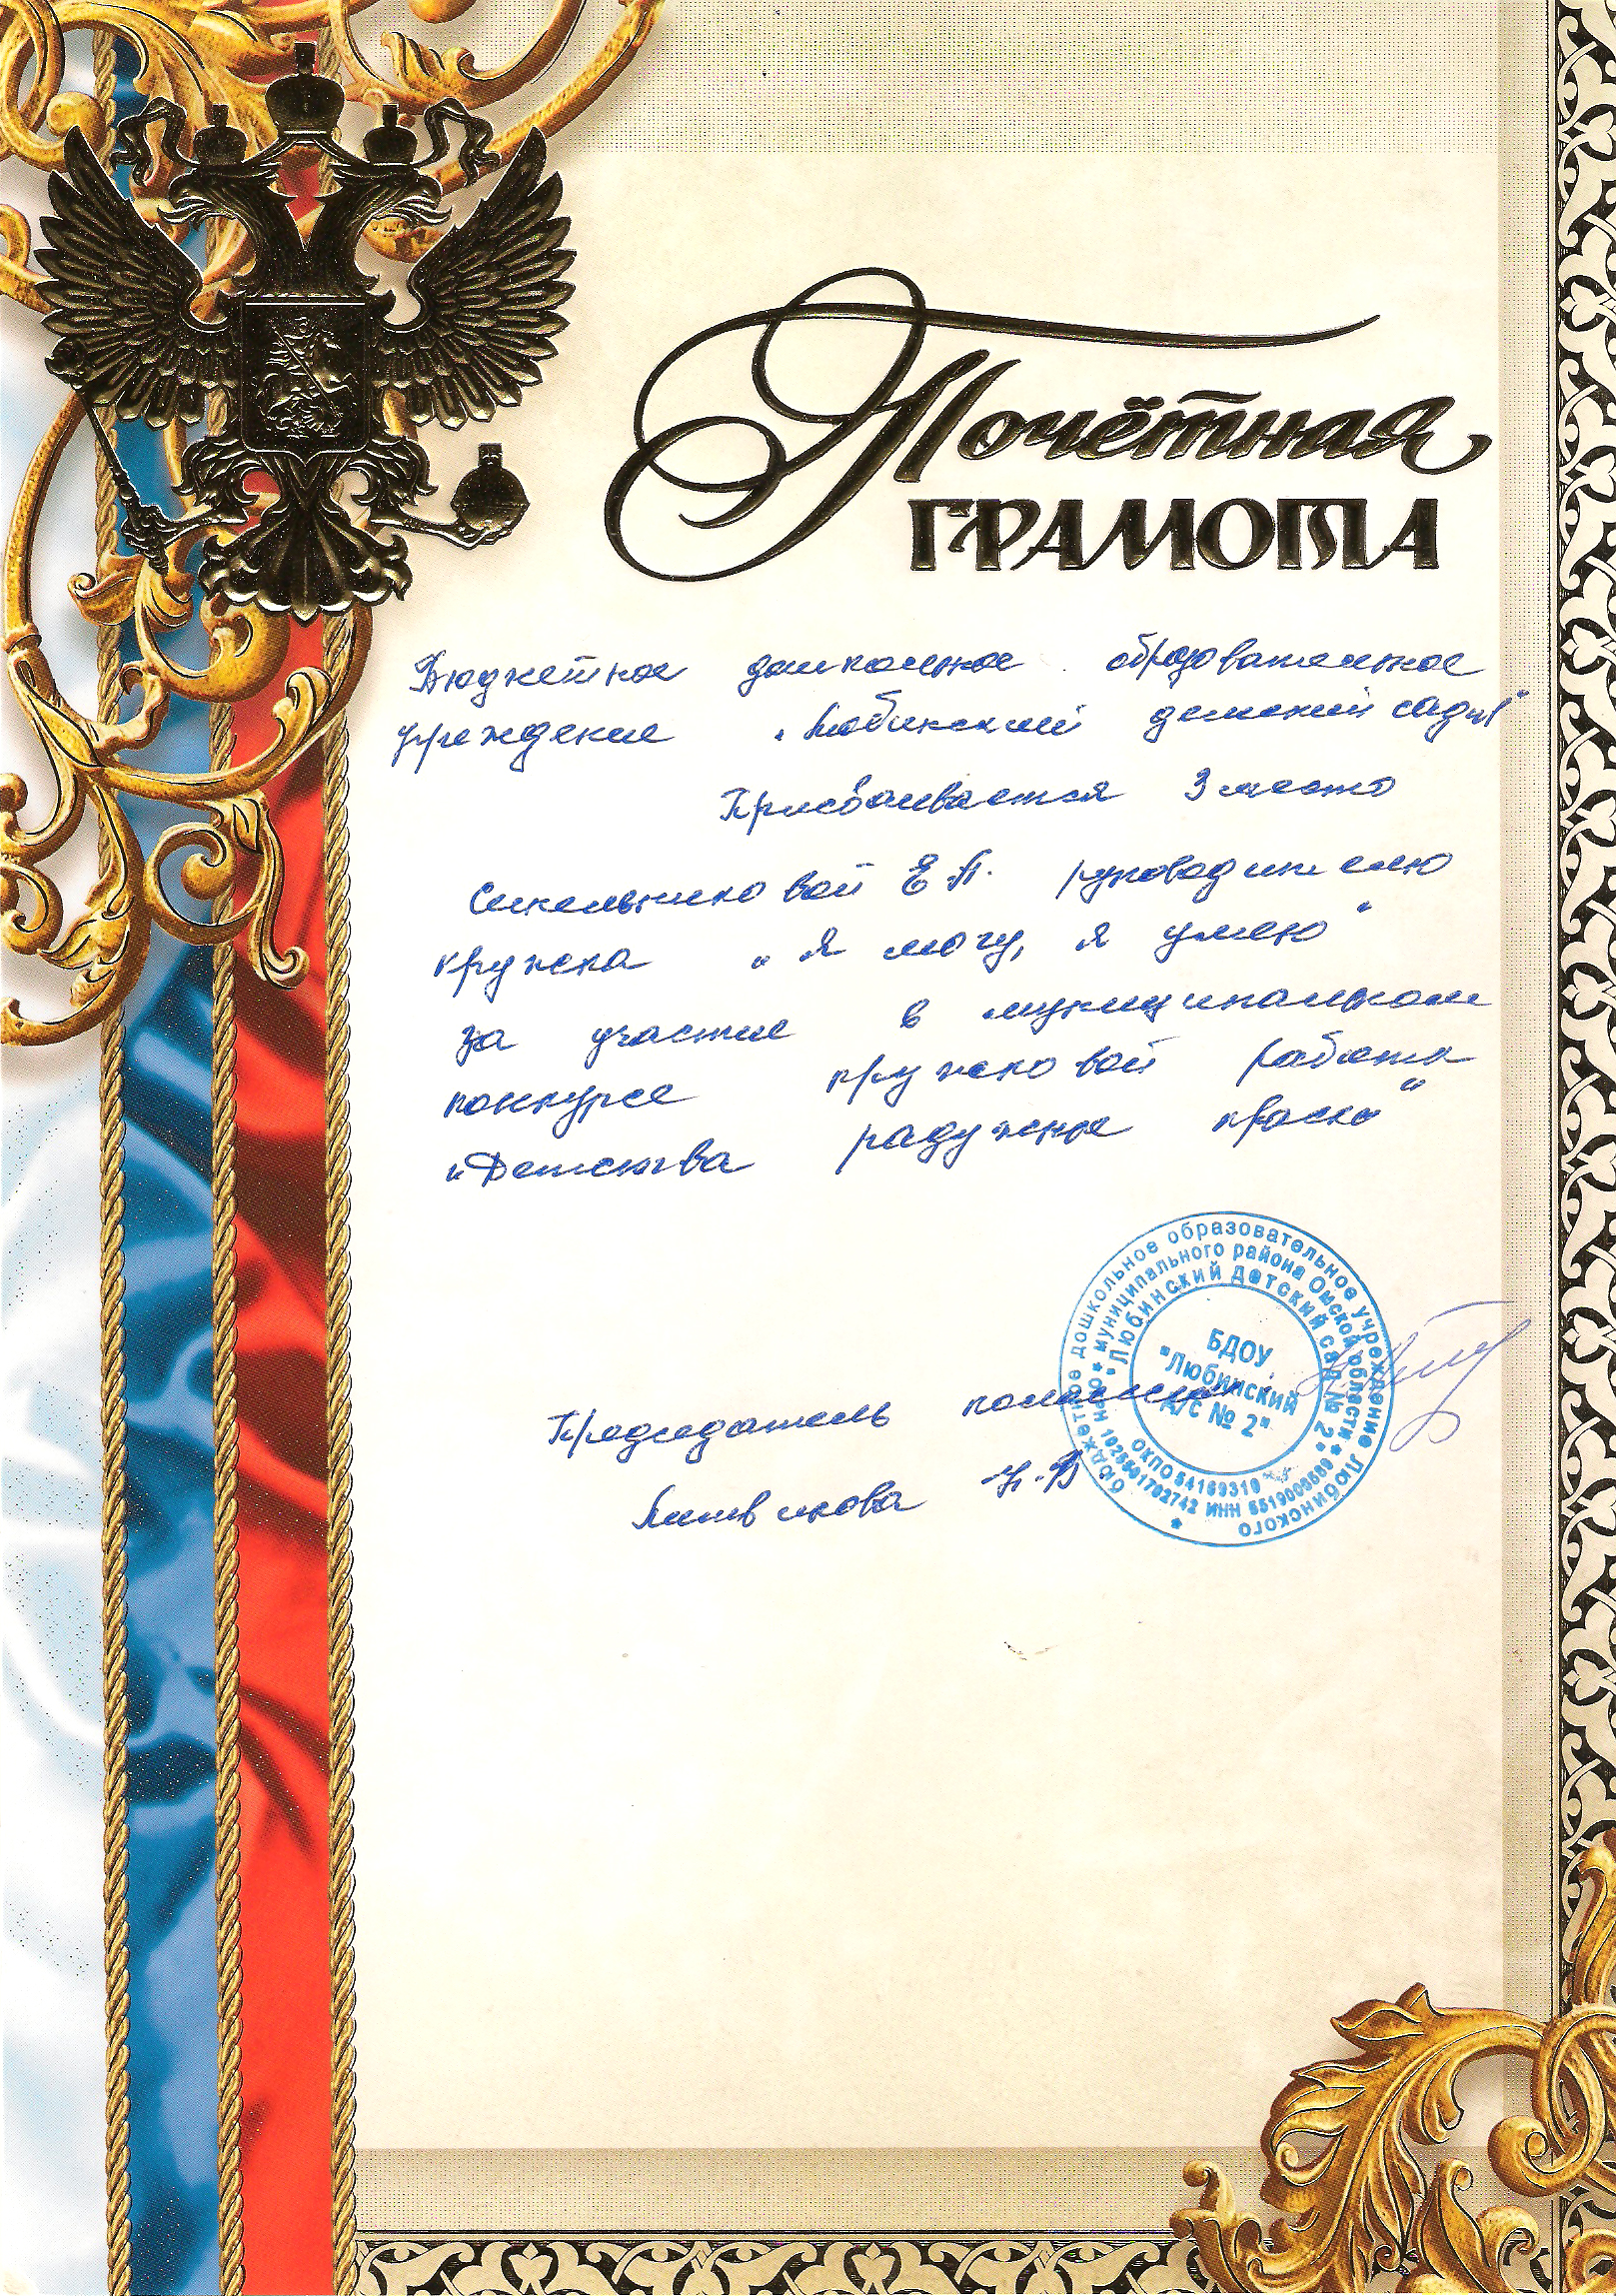 Почётная
ГРАМОТА
Бюджетное дошкольное образовательное
учреждение "Любинский детский сад №1"
Присваивается 3 место
Синельниковой Е.А. руководителю
кружка "Я могу, я умею"
за участие в муниципальном
конкурсе кружковой работы
"Детства радужные краски"
Председатель комиссии
Литвинова Н.В.
бюджетное дошкольное образовательное учреждение Любинского
муниципального района Омской области
"Любинский детский сад № 2"
БДОУ
"Любинский
д/с № 2"
ОКПО 54169319
ИНН